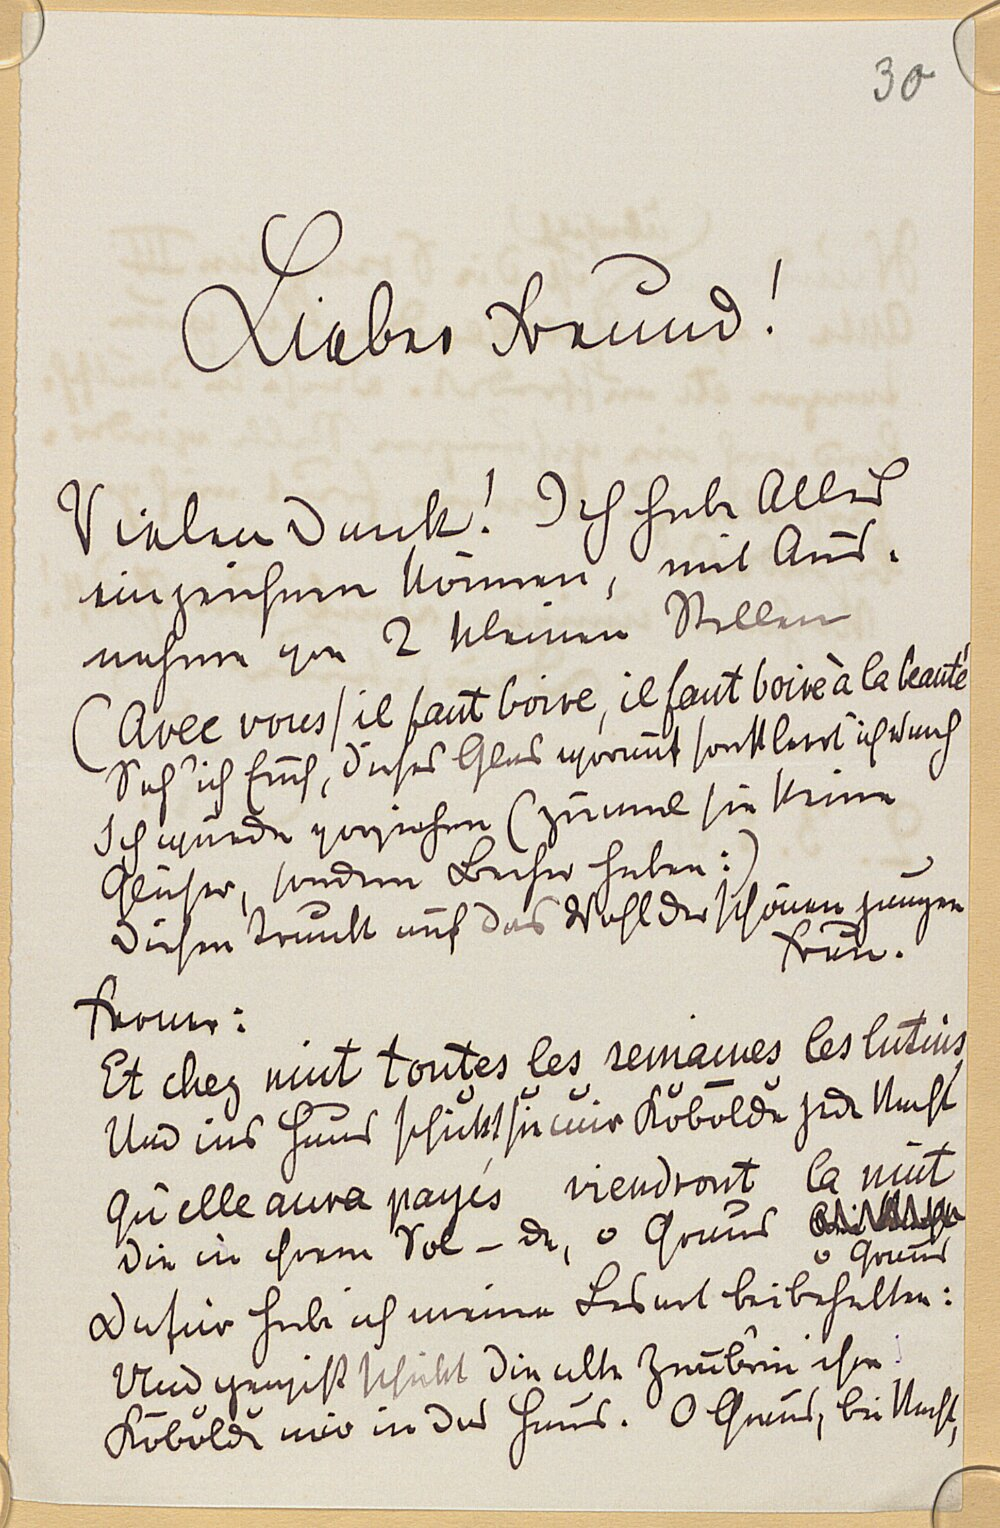 30
Lieber Freund!
Vielen Dank! Ich habe Alles
einzeichnen können, mit Aus-
nahme von 2 kleinen Stellen
(Avec vous / il faut boire, il faut boire à la beauté
Seh' ich Euch, dieses Glas worauf sonst leert' ich
Ich würde vorziehen (zumal sie keine
Gläser, sondern Becher haben:)
Diesen Trunk auf das Wohl der schönen jungen
Frau.
Ferner:
Et chez nuit toutes les semaines les lutins
Und ins Haus schickt sie mir Kobolde jede Nacht
Qu'elle aura payés viendront la nuit
Die in ihrem Sol – de, o Graus
o Graus
Dafür hab ich meine Lesart beibehalten:
Und gewiß schickt die alte Zaub'rin ihre
Kobolde mir in das Haus. O Graus, bei Nacht,